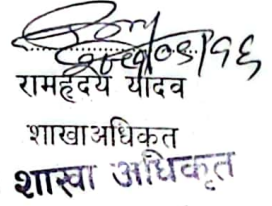 रामहृदय यादव
शाखाअधिकृत
शाखा अधिकृत